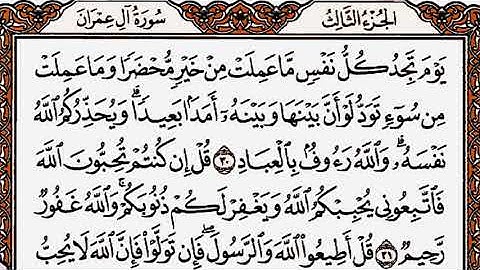 سُورَةُ آلِ عِمْرَانَ الجُزْءُ الثَّالِثُ
يَوْمَ تَجِدُ كُلُّ نَفْسٍ مَّا عَمِلَتْ مِنْ خَيْرٍ مُّحْضَرًا وَمَا عَمِلَتْ
مِن سُوٓءٍ تَوَدُّ لَوْ أَنَّ بَيْنَهَا وَبَيْنَهُۥٓ أَمَدَۢا بَعِيدًاۗ وَيُحَذِّرُكُمُ ٱللَّهُ
نَفْسَهُۥۗ وَٱللَّهُ رَءُوفُۢ بِٱلْعِبَادِ ٣٠ قُلْ إِن كُنتُمْ تُحِبُّونَ ٱللَّهَ
فَٱتَّبِعُونِي يُحْبِبْكُمُ ٱللَّهُ وَيَغْفِرْ لَكُمْ ذُنُوبَكُمْۗ وَٱللَّهُ غَفُورٌ
رَّحِيمٌ ٣١ قُلْ أَطِيعُوا۟ ٱللَّهَ وَٱلرَّسُولَۖ فَإِن تَوَلَّوْا۟ فَإِنَّ ٱللَّهَ لَا يُحِبُّ